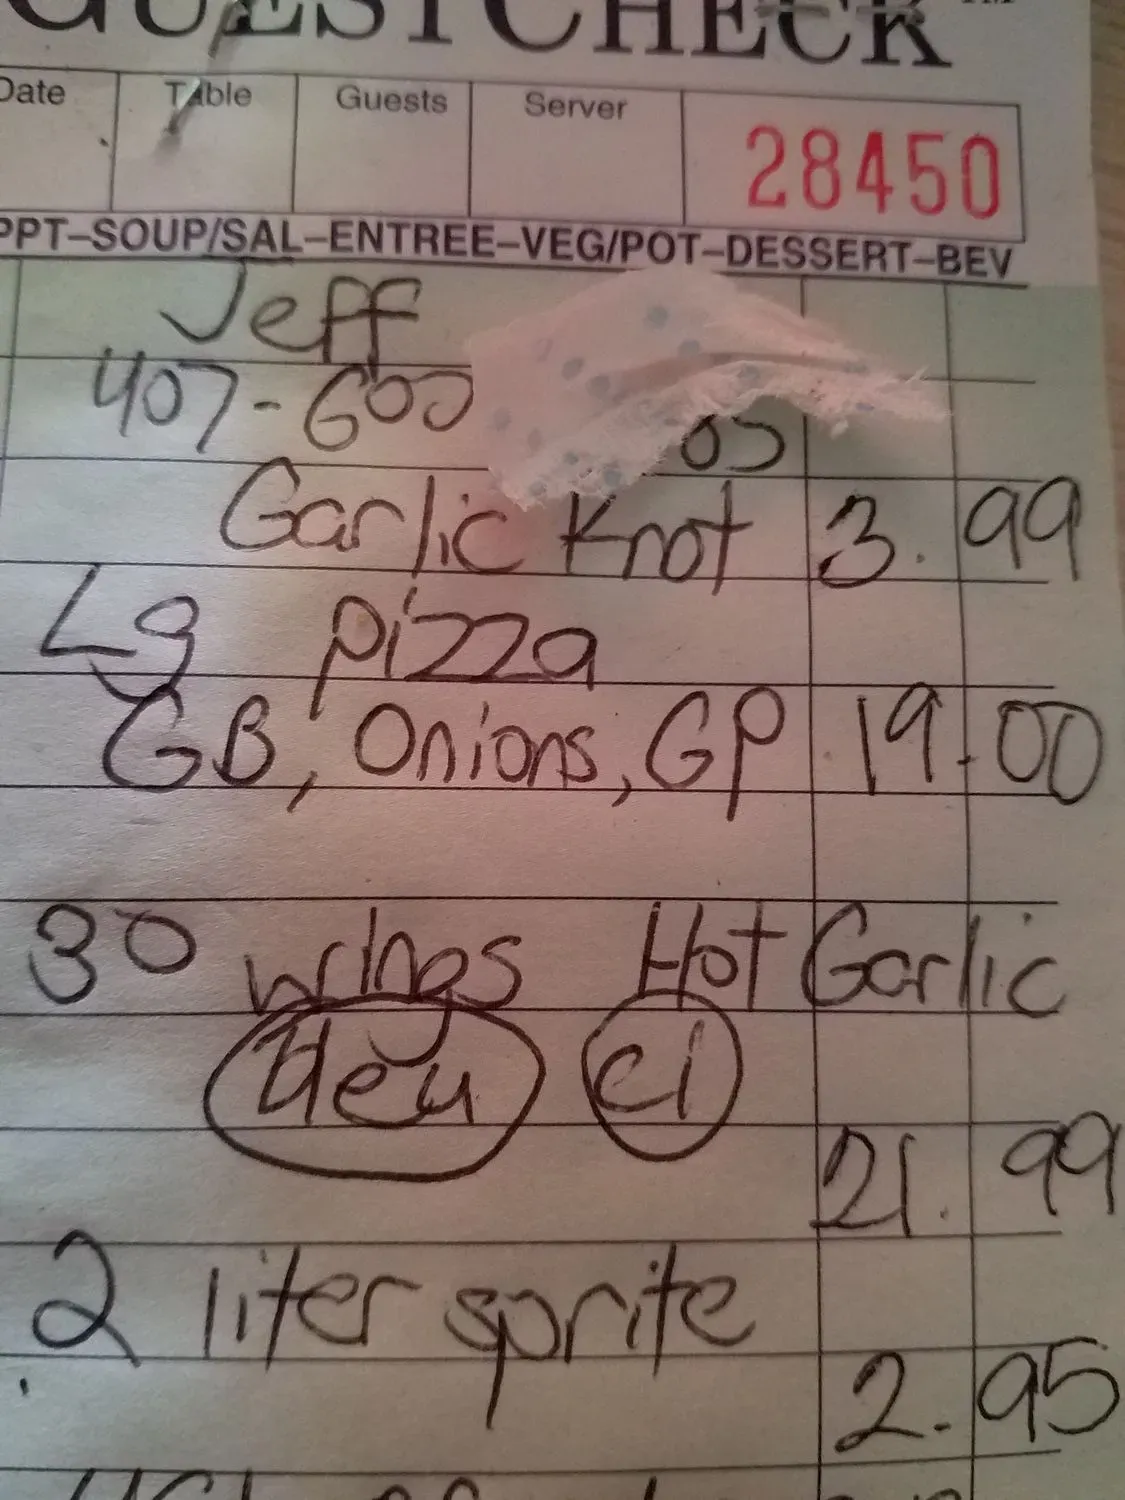 GUESTCHECK ™
Date Table Guests Server 28450
PPT-SOUP/SAL-ENTREE-VEG/POT-DESSERT-BEV
Jeff
407-600 05
Garlic Knot 3.99
Lg pizza
GB, Onions, GP 19.00
30 wings Hot Garlic
21.99
2 liter sprite
2.95